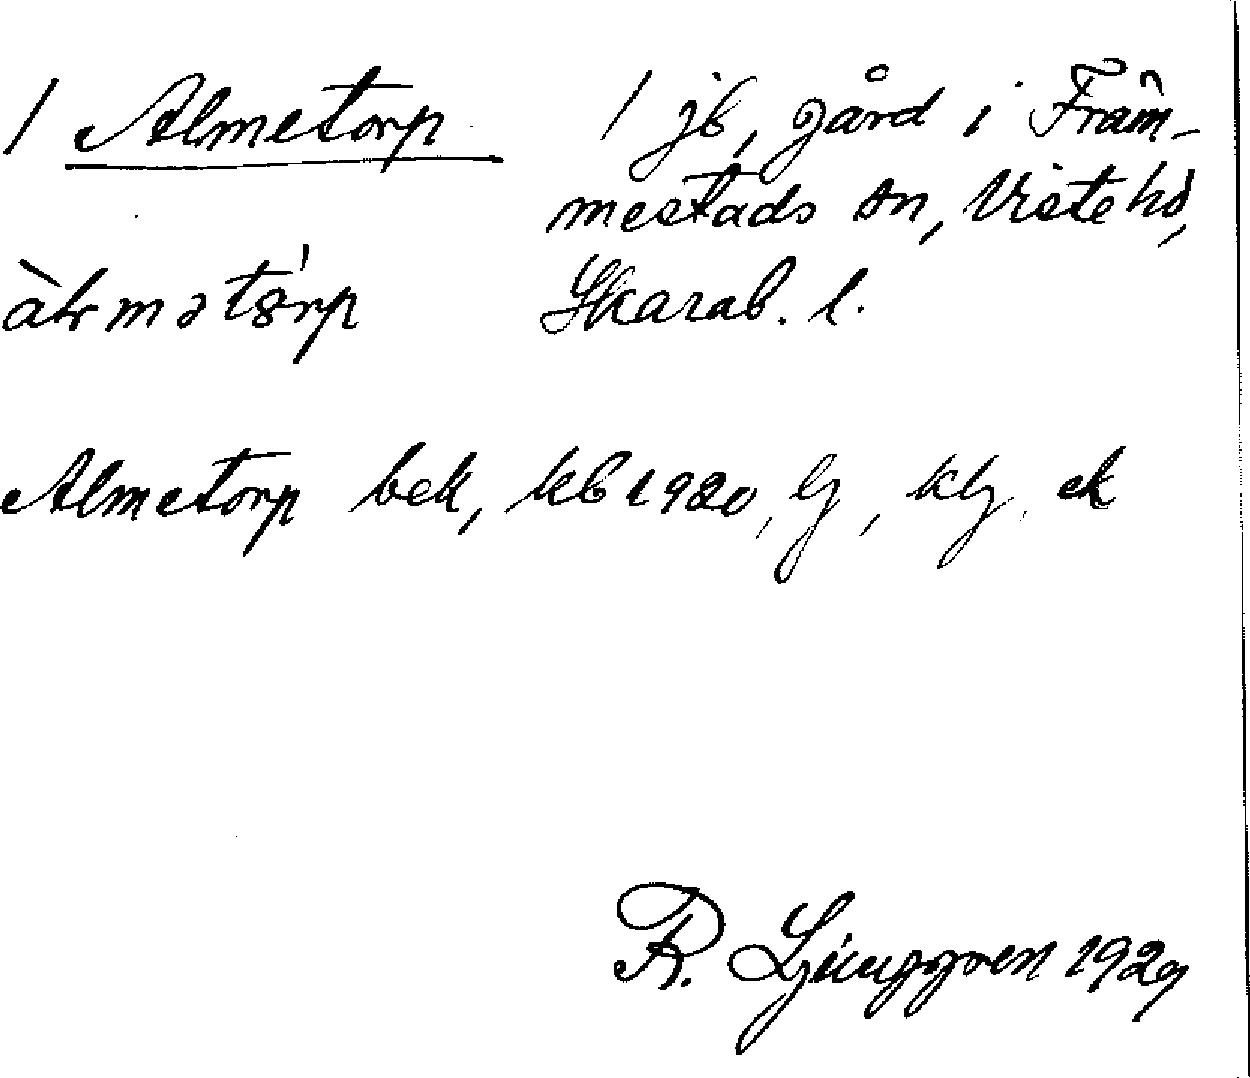 / Almetorp / jb, gård i Främ-
mestads sn, Viste hd,
Skarab. l.
Almetorp bek, kb 1920, lj, klj, ek
R. Ljunggren 1929